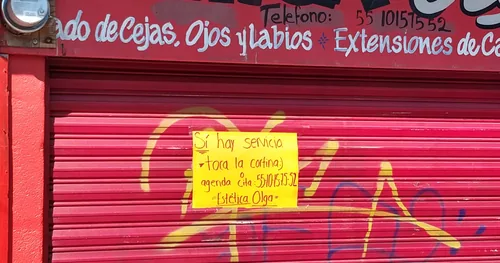 Telefono: 55 10157552
ado de Cejas, Ojos y Labios * Extensiones de Ca
Sí hay servicio
• toca la cortina,
o
agenda cita 5510157552
-Estética Olga-